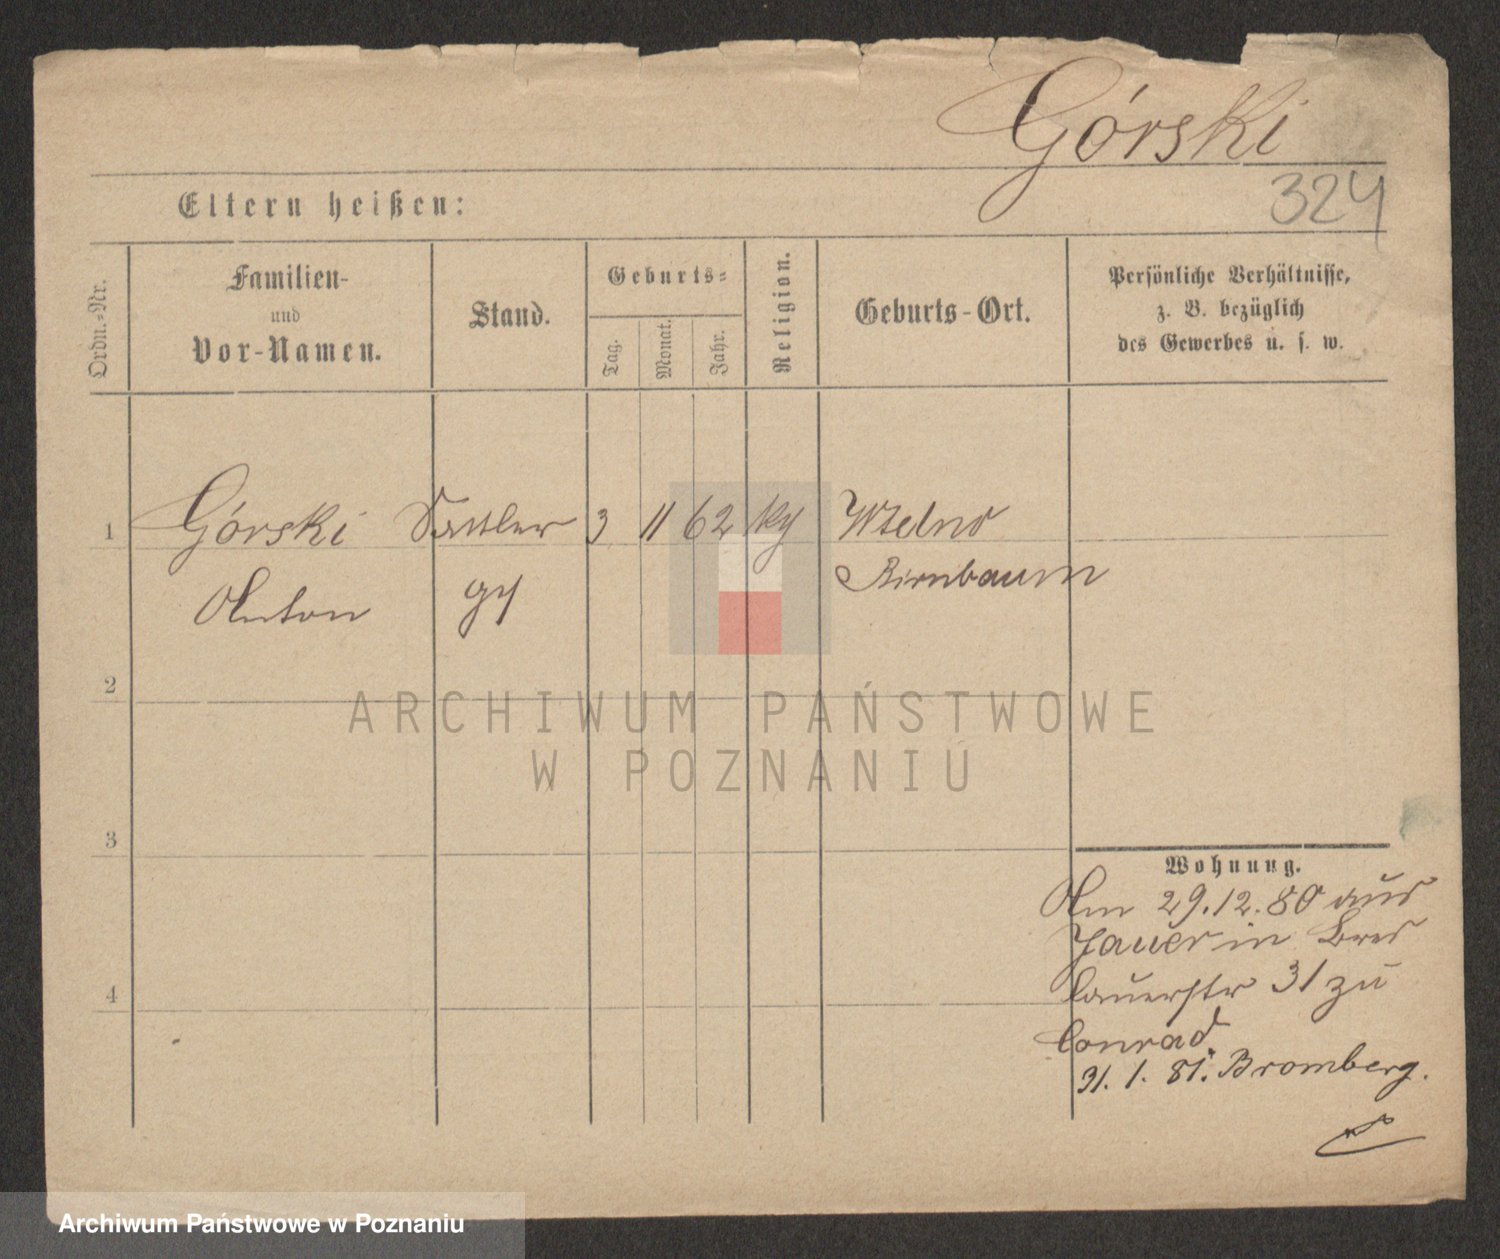 Górski
324
Eltern heißen:
Ordn.-Nr.
Familien-
und
Vor-Namen.
Stand.
Geburts-
Tag.
Monat.
Jahr.
Religion.
Geburts-Ort.
Persönliche Verhältnisse,
z. B. bezüglich
des Gewerbes u. s. w.
1 Górski Sattler 3 11 62 Birnbaum
Anton
2
3
4
Wohnung.
Am 29.12.80 aus
Jauer in Bres
lauerstr 31 zu
Conrad.
31. 1. 81. Bromberg.
ARCHIWUM PAŃSTWOWE
W POZNANIU
Archiwum Państwowe w Poznaniu